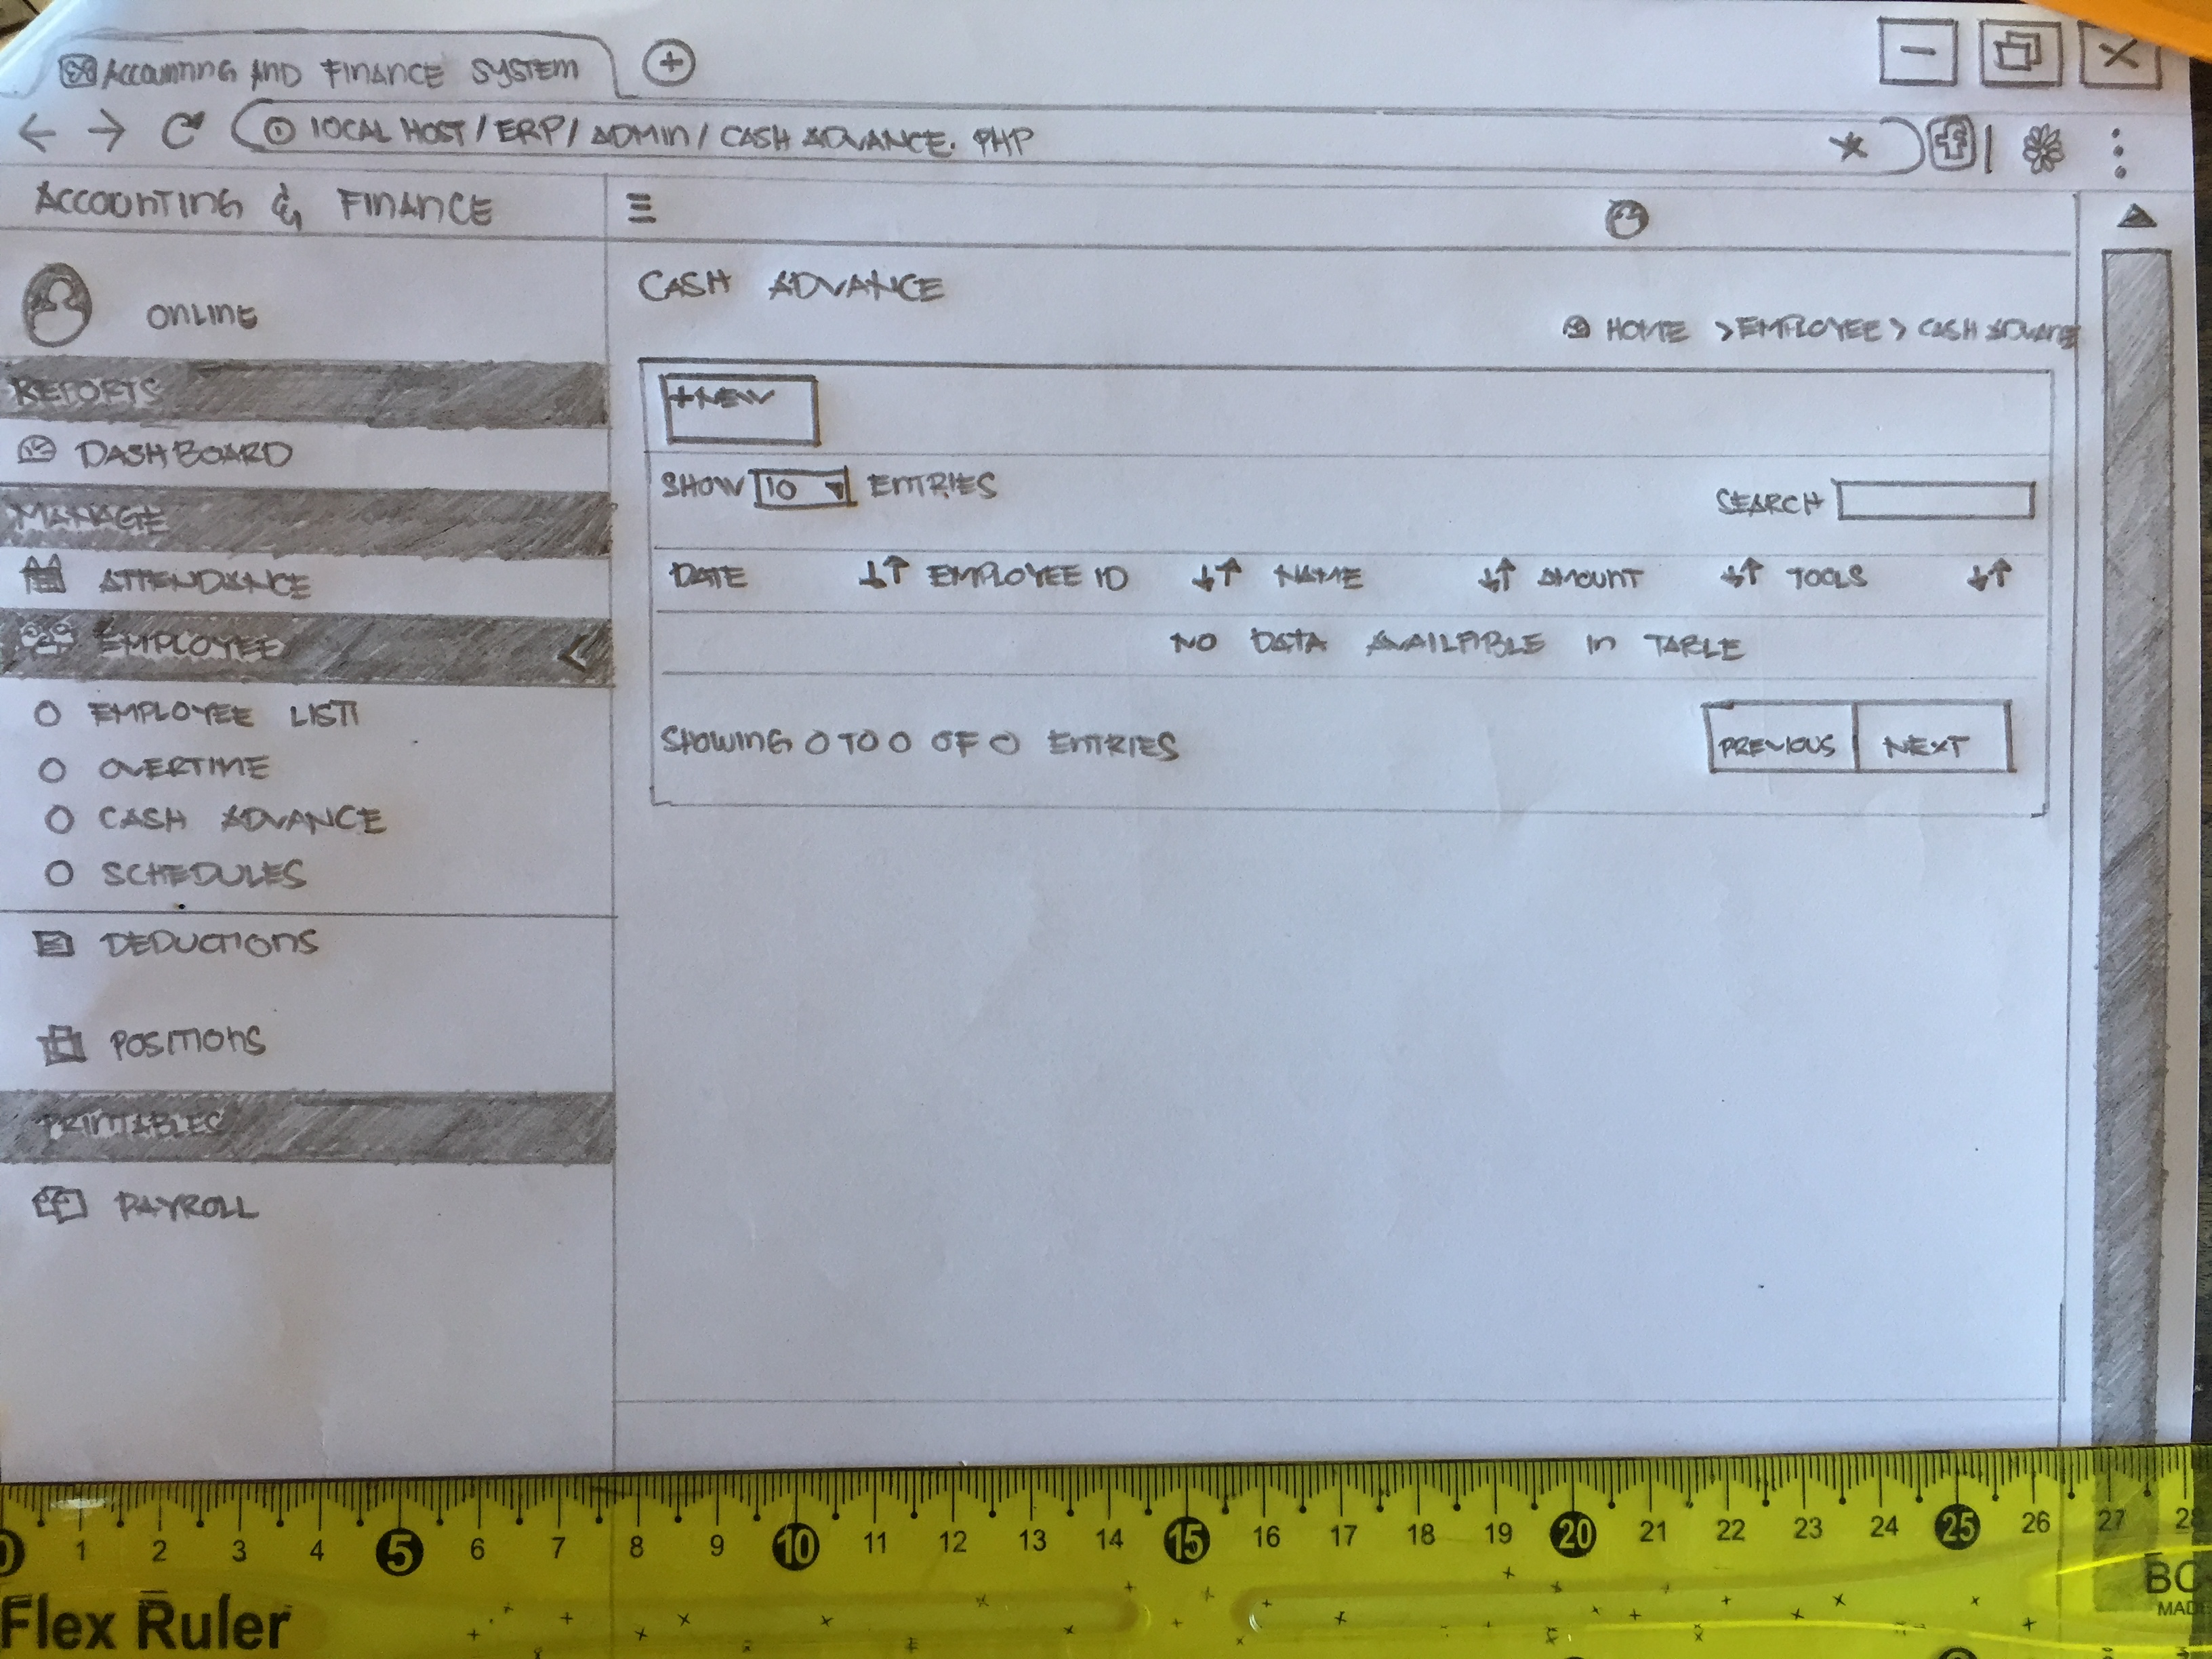 ACCOUNTING AND FINANCE SYSTEM
LOCAL HOST/ERP/ADMIN/CASH ADVANCE.PHP
ACCOUNTING & FINANCE
ONLINE
REPORTS
DASHBOARD
MANAGE
ATTENDANCE
EMPLOYEE
EMPLOYEE LIST
OVERTIME
CASH ADVANCE
SCHEDULES
DEDUCTIONS
POSITIONS
PRINTABLES
PAYROLL
CASH ADVANCE
HOME >EMPLOYEE> CASH ADVANCE
+NEW
SHOW 10 ENTRIES
SEARCH
DATE EMPLOYEE ID NAME AMOUNT TOOLS
NO DATA AVAILABLE IN TABLE
SHOWING 0 TO 0 OF 0 ENTRIES
PREVIOUS NEXT
0 1 2 3 4 5 6 7 8 9 10 11 12 13 14 15 16 17 18 19 20 21 22 23 24 25 26 27 28
Flex Ruler